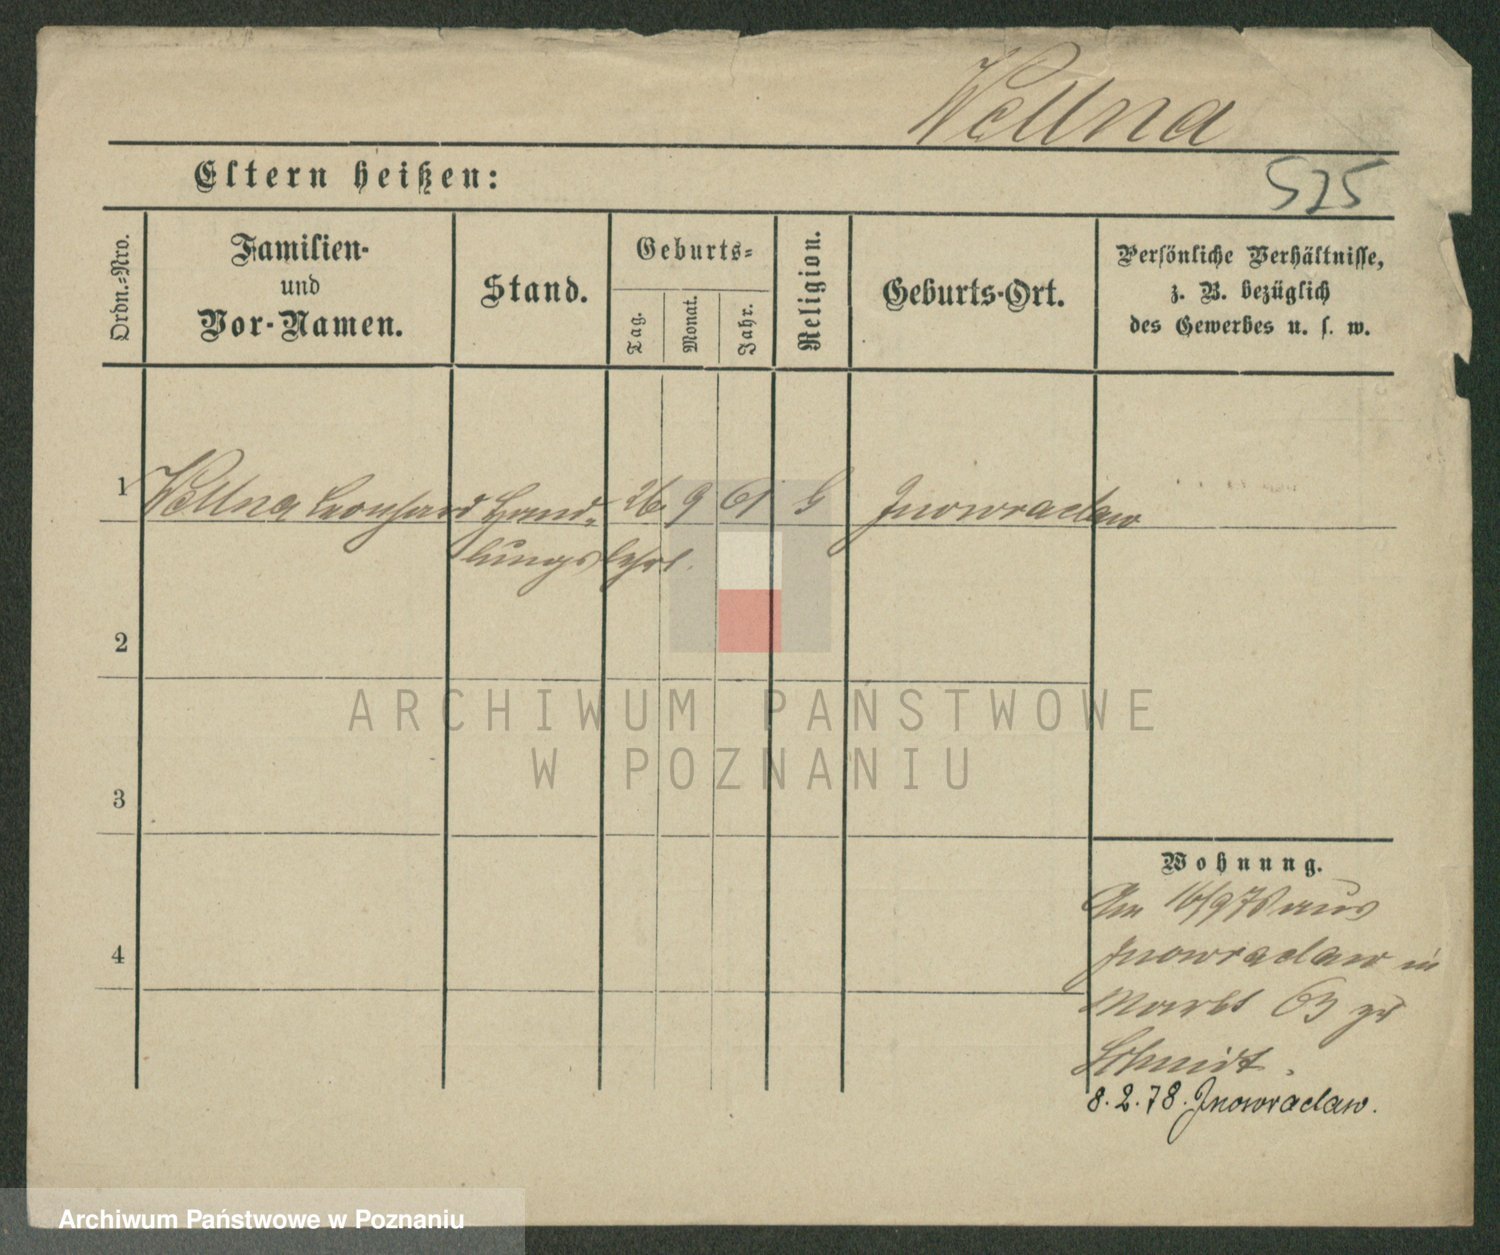 Wellna
Eltern heißen:
525
Ordn.-Nro.
Familien-
und
Vor-Namen.
Stand.
Geburts-
Tag.
Monat.
Jahr.
Religion.
Geburts-Ort.
Persönliche Verhältnisse,
z. B. bezüglich
des Gewerbes u. s. w.
1 Wellna Leonhard Hand- 26. 9 61 Inowraclaw
lungslehrl.
2
3
4
Wohnung.
Am 16/9 78 aus
Inowraclaw in
Markt 63 zu
Schmidt.
8. 2. 78. Inowraclaw.
ARCHIWUM PAŃSTWOWE
W POZNANIU
Archiwum Państwowe w Poznaniu